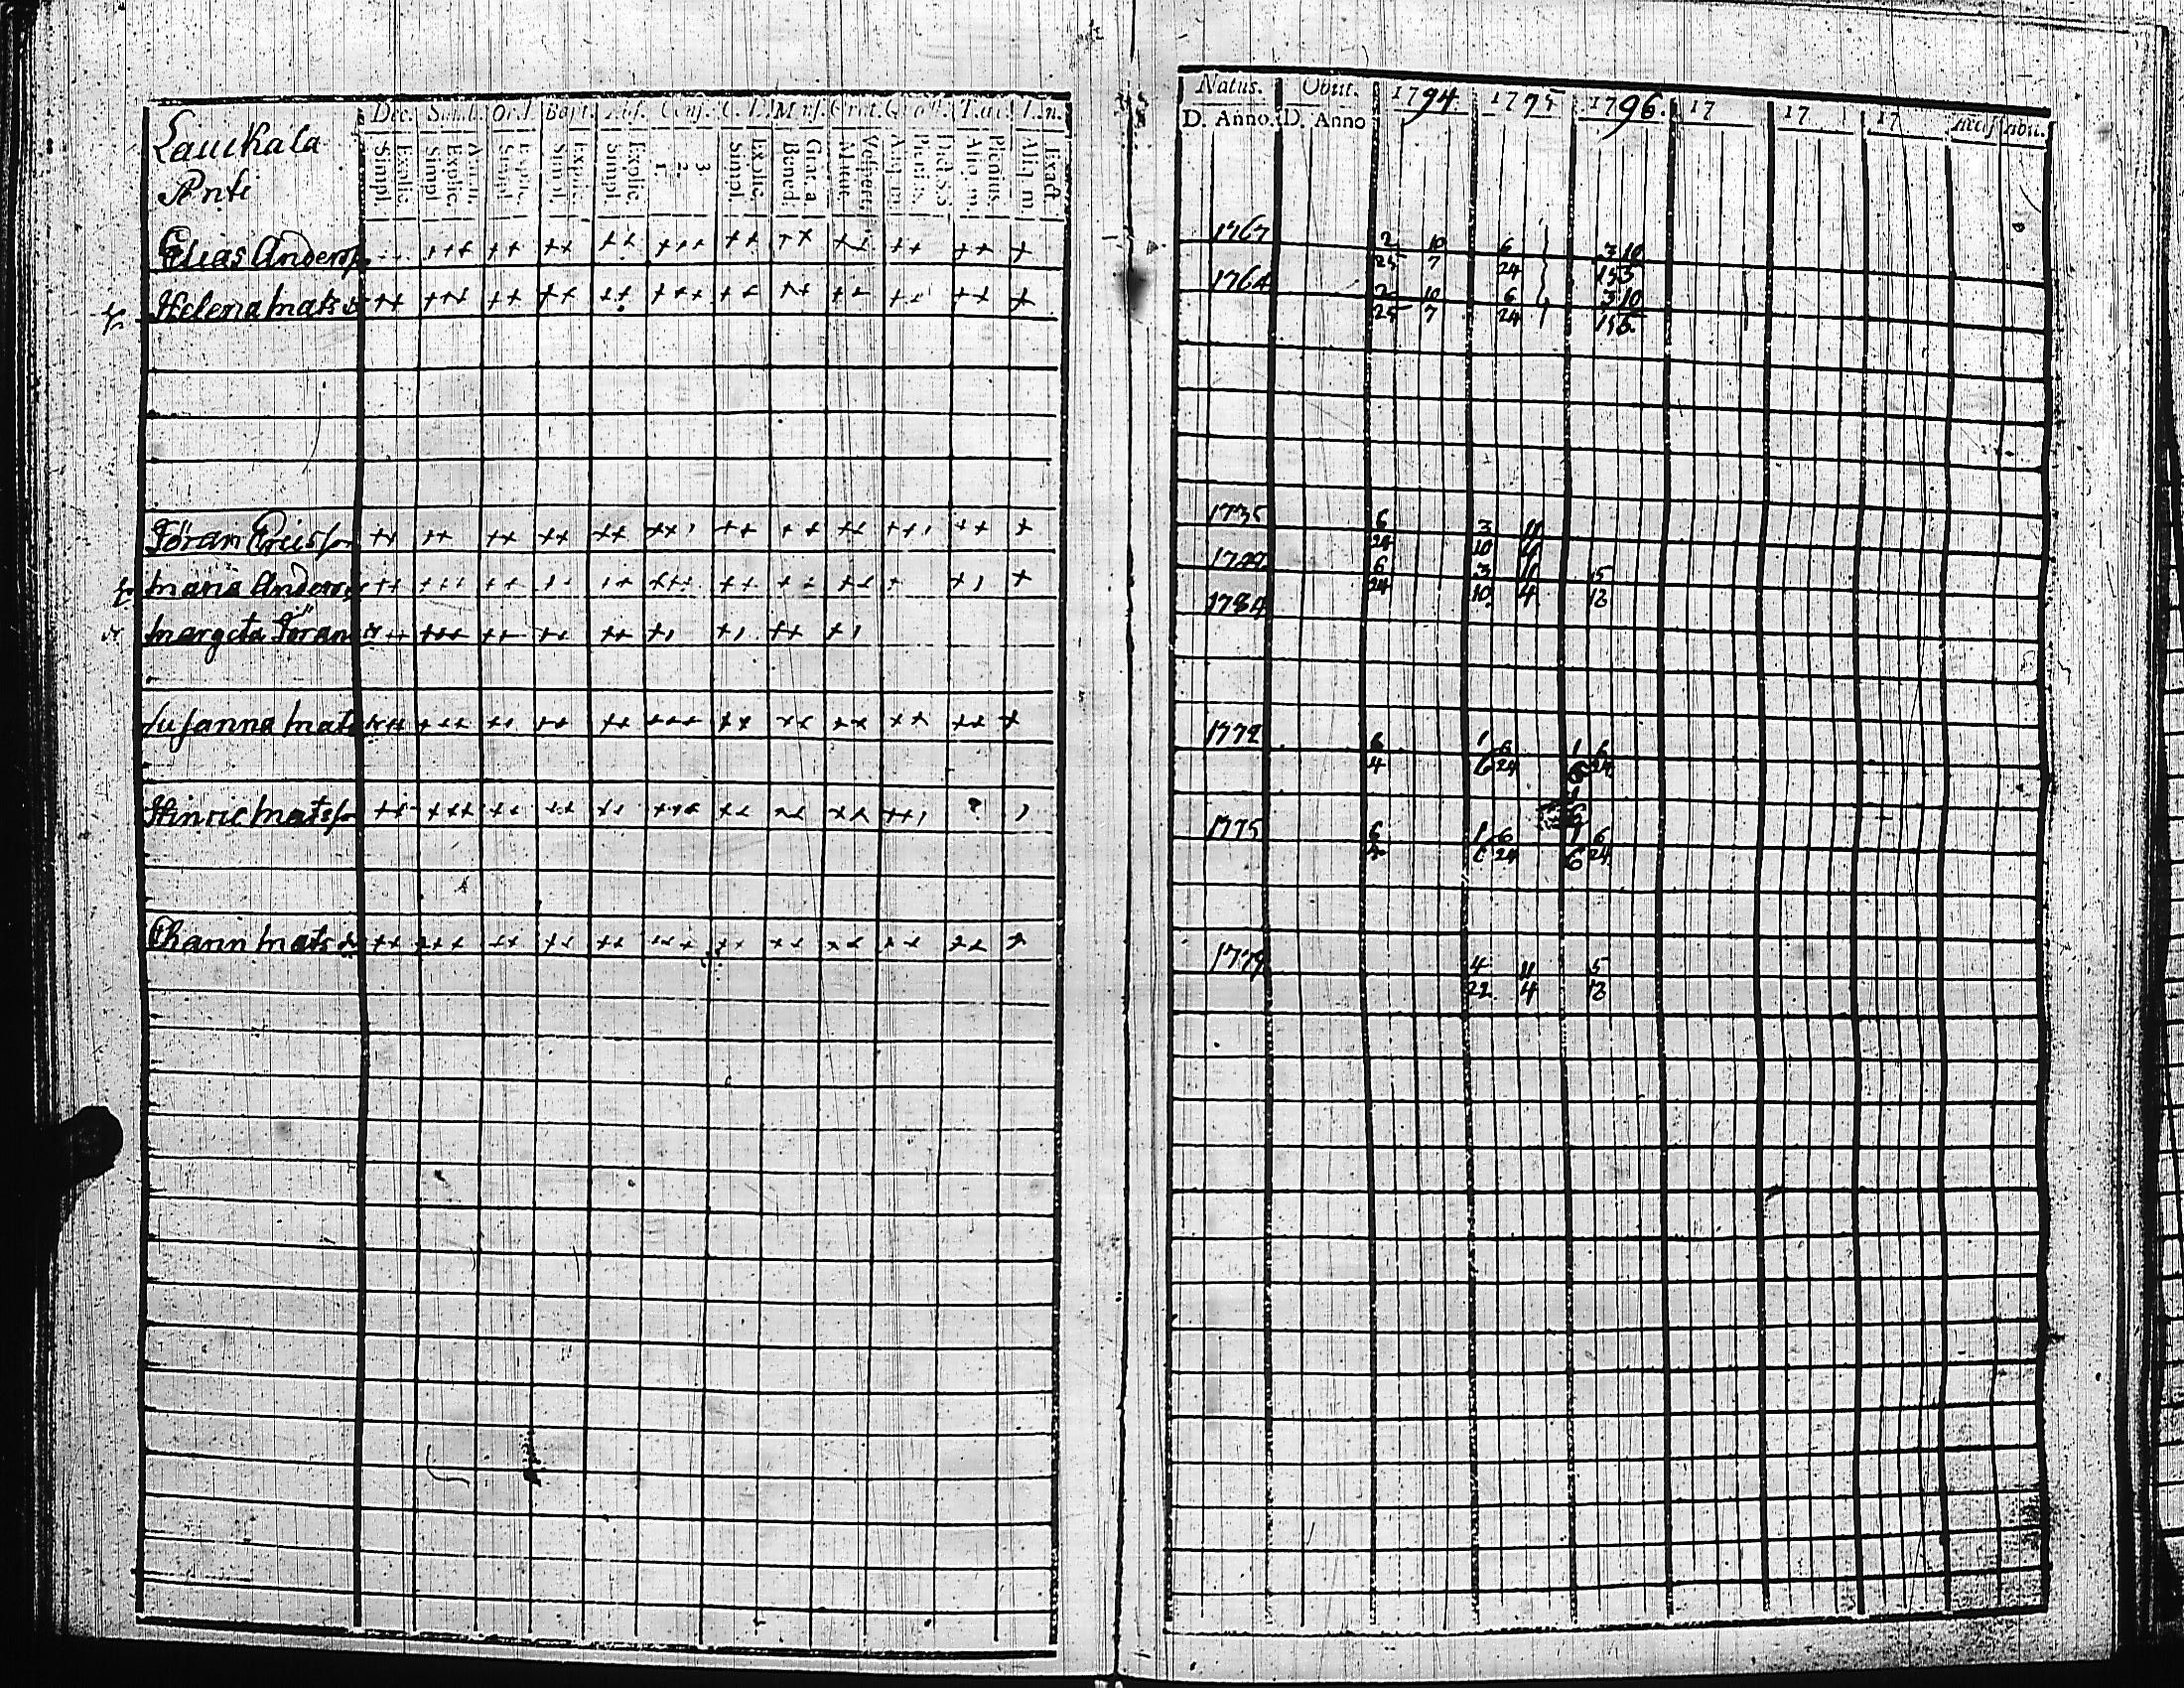 Dec. Simb. Or.d. Bapt. Abs. Conf. C. D. Mens. Grat. Tab. T.n.
Laurkala
Anti
Simpl. Explic. Simpl. Explic. Simpl. Explic. Simpl. Explic. Simpl. Explic. 1. 2. 3. Simpl. Explic. Bened. Grat. a. Matut. Vespert. Aliq. m. Plenius. Dict. S. S. Aliq. m. Plenius. Aliq. m. Exact.
Natus. Obiit. 1794. 1795 1796. 17 17 17
D. Anno. D. Anno
Elias Anders ++ +++ ++ ++ ++ +++ ++ ++ ++ ++ ++ + 1767 2/25 10/7 6/24 3/15 10/3
Helena Mats dr ++ +++ ++ ++ ++ +++ ++ ++ ++ ++ ++ + 1764 2/25 10/7 6/24 3 10
Jöran Ericsson ++ ++ ++ ++ ++ ++ ++ ++ ++ ++ ++ + 1735 6/24 3/10 11/4
Maria Anders ++ +++ ++ ++ +++ ++ ++ + + 6/24 3/10 11/4 5/12
Margeta Jörans dr ++ +++ ++ ++ ++ + + ++ + 1784
Susanna Mats dr ++ +++ ++ ++ ++ +++ ++ ++ ++ ++ ++ + 1772 6/4 1/6 6/24 1/6 6/24
Hinric Matsson ++ +++ ++ ++ ++ +++ ++ ++ ++ ++ 1775 1/6 6/24 1/6 6/24
Charin Mats dr ++ +++ ++ ++ ++ +++ ++ ++ ++ ++ ++ + 1779 4/22 11/4 5/12